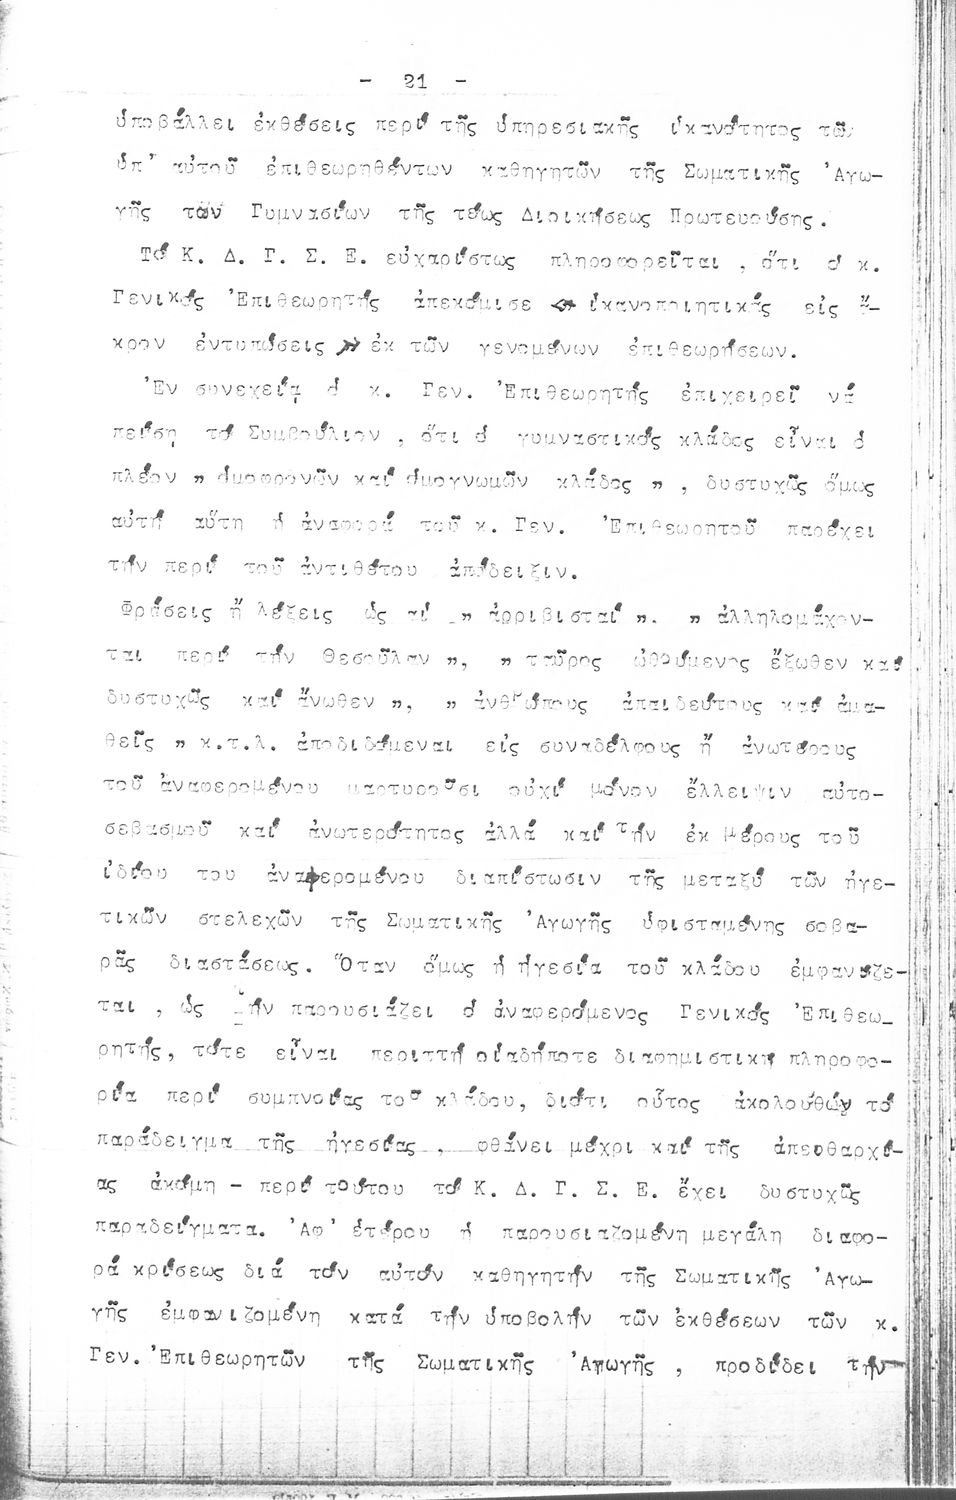 - 21 -
ὑποβάλλει ἐκθέσεις περί τῆς ὑπηρεσιακῆς ἱκανότητος τῶν
ὑπ' αὐτοῦ ἐπιθεωρηθέντων καθηγητῶν τῆς Σωματικῆς 'Αγω-
γῆς τῶν Γυμνασίων τῆς τέως Διοικήσεως Πρωτευούσης.
Τό Κ. Δ. Γ. Σ. Ε. εὐχαρίστως πληροφορεῖται , ὅτι ὁ κ.
Γενικός 'Επιθεωρητής ἀπεκόμισε « ἱκανοποιητικάς εἰς ἄ-
κρον ἐντυπώσεις » ἐκ τῶν γενομένων ἐπιθεωρήσεων.
'Εν συνεχείᾳ ὁ κ. Γεν. 'Επιθεωρητής ἐπιχειρεῖ νά
πείσῃ τό Συμβούλιον , ὅτι ὁ γυμναστικός κλάδος εἶναι ὁ
πλέον " ὁμοφρονῶν καί ὁμογνωμῶν κλάδος " , δυστυχῶς ὅμως
αὐτή αὕτη ἡ ἀναφορά τοῦ κ. Γεν. 'Επιθεωρητοῦ παρέχει
τήν περί τοῦ ἀντιθέτου ἀπόδειξιν.
Φράσεις ἤ λέξεις ὡς αἱ " ἀρριβισταί ", " ἀλληλομάχον-
ται περί τήν Θεσοῦλαν ", " ταῦρος ὠθούμενος ἔξωθεν καί
δυστυχῶς καί ἄνωθεν ", " ἀνθρώπους ἀπαιδεύτους καί ἀμα-
θεῖς " κ.τ.λ. ἀποδιδόμεναι εἰς συναδέλφους ἤ ἀνωτέρους
τοῦ ἀναφερομένου μαρτυροῦσι οὐχί μόνον ἔλλειψιν αὐτο-
σεβασμοῦ καί ἀνωτερότητος ἀλλά καί τήν ἐκ μέρους τοῦ
ἰδίου του ἀναφερομένου διαπίστωσιν τῆς μεταξύ τῶν ἡγε-
τικῶν στελεχῶν τῆς Σωματικῆς 'Αγωγῆς ὑφισταμένης σοβα-
ρᾶς διαστάσεως. Ὅταν ὅμως ἡ ἡγεσία τοῦ κλάδου ἐμφανίζε-
ται , ὡς τήν παρουσιάζει ὁ ἀναφερόμενος Γενικός 'Επιθεω_
ρητής, τότε εἶναι περιττή οἱαδήποτε διαφημιστική πληροφο-
ρία περί συμπνοίας τοῦ κλάδου, διότι οὗτος ἀκολουθῶν τό
παράδειγμα τῆς ἡγεσίας , φθάνει μέχρι καί τῆς ἀπειθαρχί-
ας ἀκόμη - περί τούτου τό Κ. Δ. Γ. Σ. Ε. ἔχει δυστυχῶς
παραδείγματα. 'Αφ' ἑτέρου ἡ παρουσιαζομένη μεγάλη διαφο-
ρά κρίσεως διά τόν αὐτόν καθηγητήν τῆς Σωματικῆς 'Αγω-
γῆς ἐμφανιζομένη κατά τήν ὑποβολήν τῶν ἐκθέσεων τῶν κ.
Γεν. 'Επιθεωρητῶν τῆς Σωματικῆς 'Αγωγῆς , προδίδει τήν